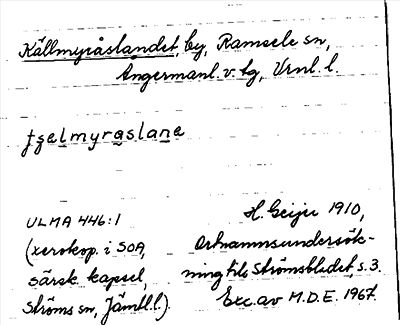 Källmyråslandet, by, Ramsele sn,
Ångermanl. v. tg, Vrnl. l.
tselmyraslane
ULMA 446:1
(xerokop. i SOA,
särsk. kapsel,
Ströms sn, Jämtl.l.)
H. Geijer 1910,
Ortnamnsundersök-
ning tills Strömsbladet, s. 3.
Exc. av M.D.E. 1967.